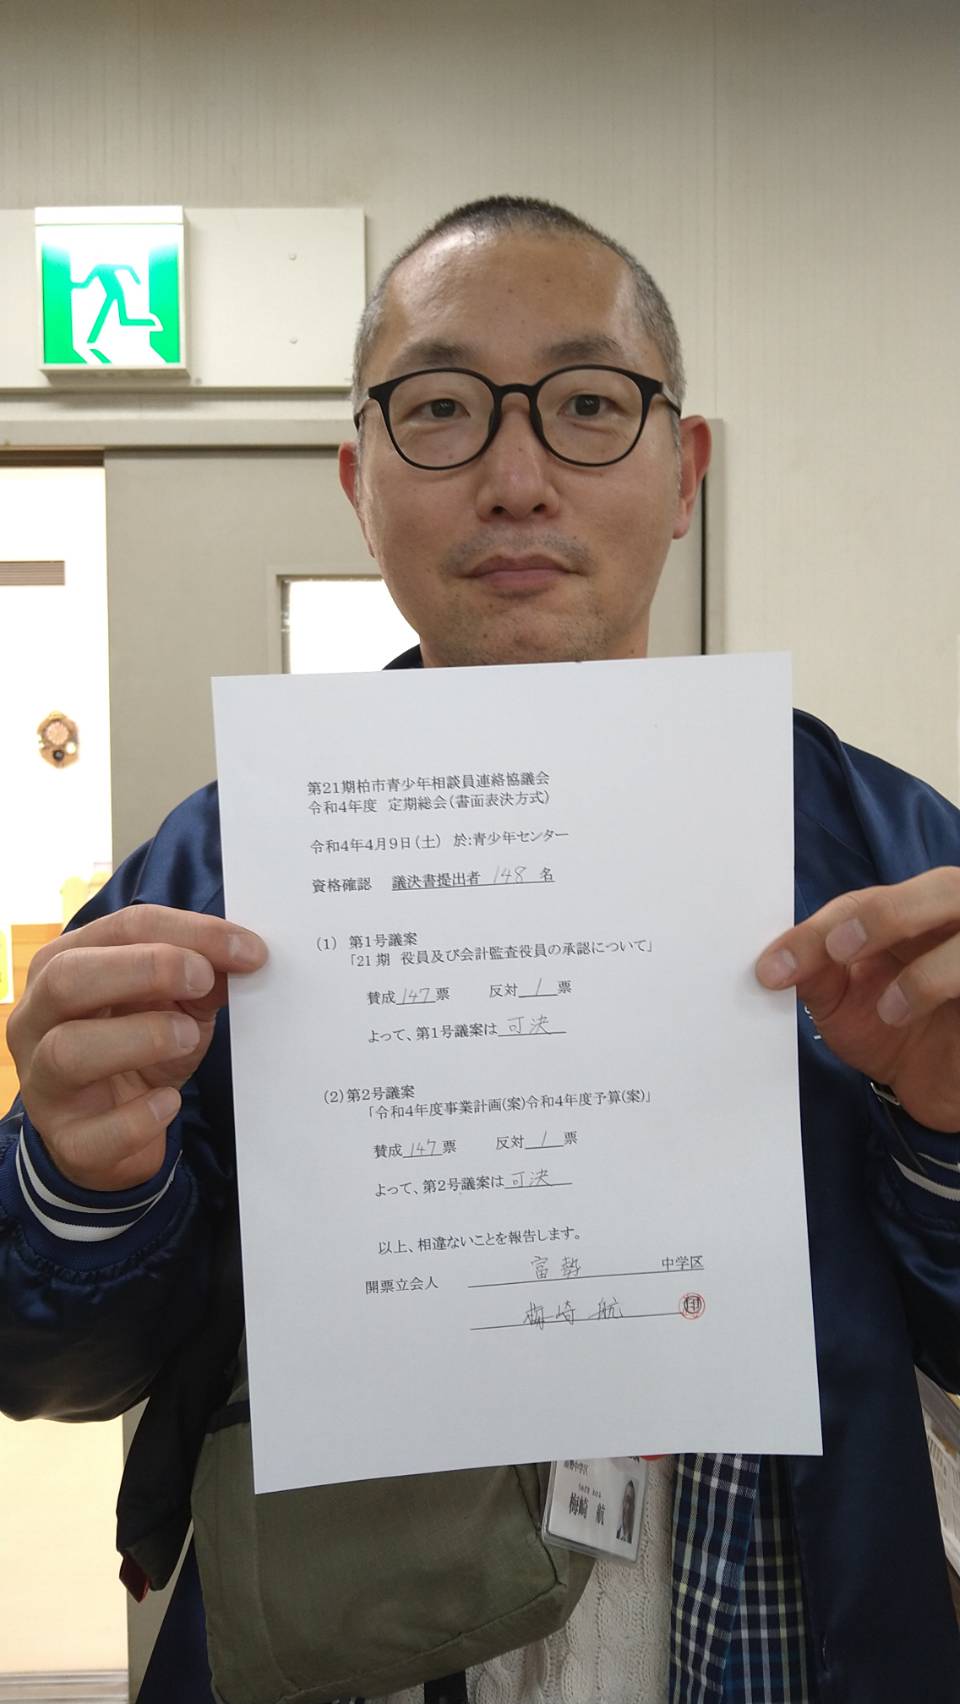 第21期柏市青少年相談員連絡協議会
令和4年度 定期総会(書面表決方式)
令和4年4月9日(土) 於:青少年センター
資格確認 議決書提出者 148 名
(1) 第1号議案
「21期 役員及び会計監査役員の承認について」
賛成 147 票 反対 1 票
よって、第1号議案は 可決
(2)第2号議案
「令和4年度事業計画(案)令和4年度予算(案)」
賛成 147 票 反対 1 票
よって、第2号議案は 可決
以上、相違ないことを報告します。
開票立会人 富勢 中学区
梅崎 航 印
中学区
梅崎 航